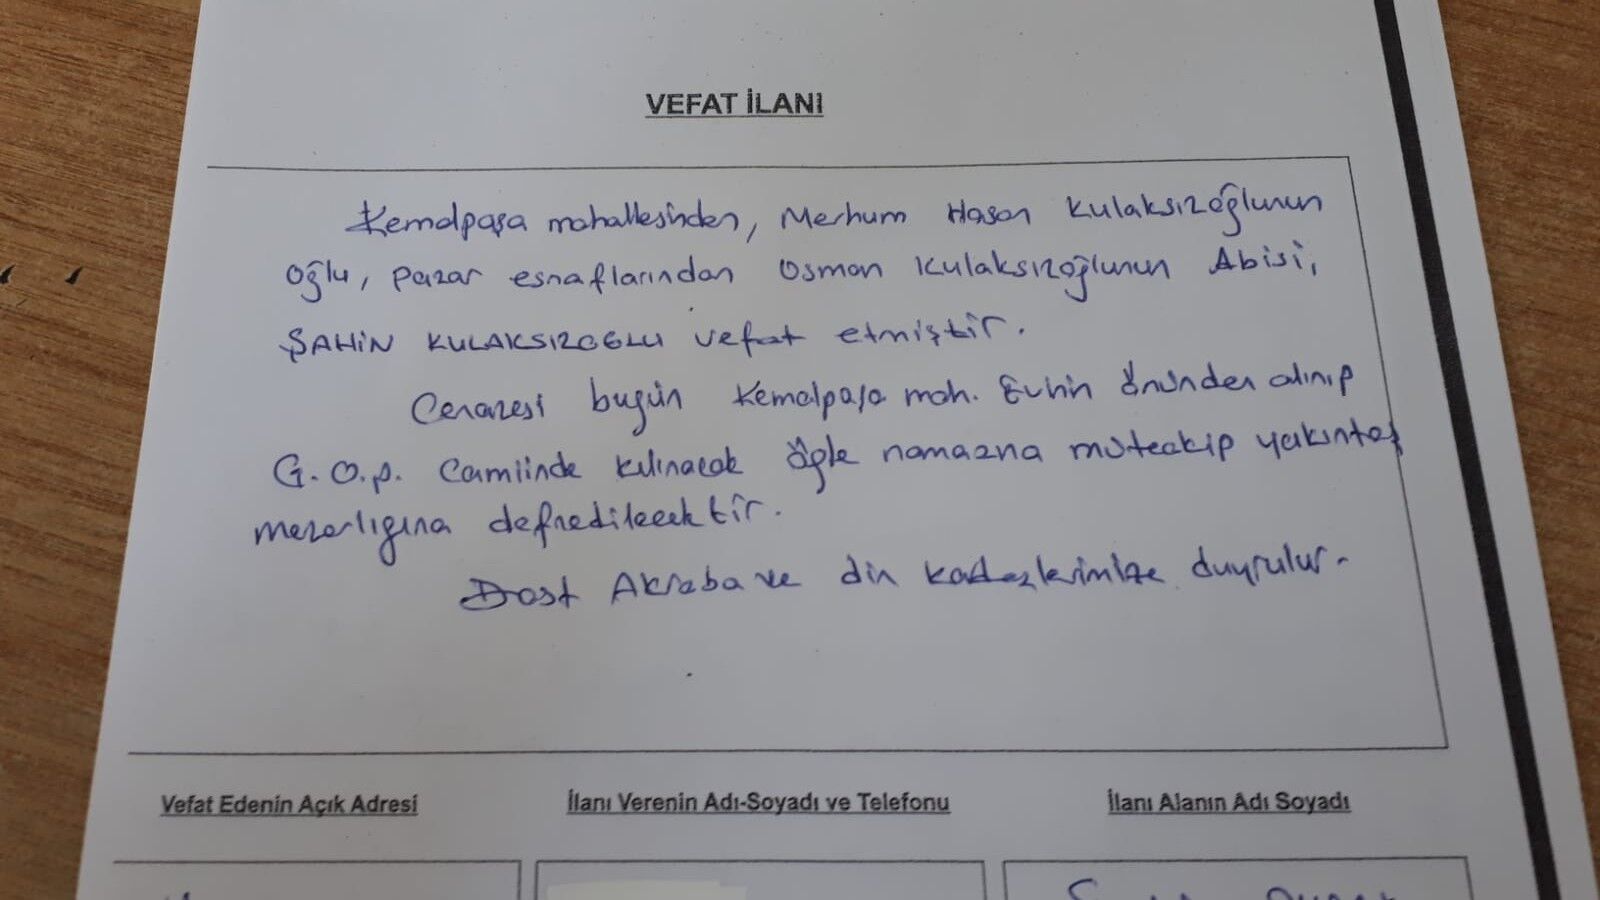 VEFAT İLANI
Kemalpaşa mahallesinden, Merhum Hasan Kulaksızoğlunun
oğlu, pazar esnaflarından Osman Kulaksızoğlunun Abisi,
ŞAHİN KULAKSIZOGLU vefat etmiştir.
Cenazesi bugün Kemalpaşa mah. Evinin önünden alınıp
G.O.p. camiinde kılınacak öğle namazına müteakip yakıntaş
mezarlığına defnedilecektir.
Dost Akraba ve din kardeşlerimize duyrulur.
Vefat Edenin Açık Adresi
İlanı Verenin Adı-Soyadı ve Telefonu
İlanı Alanın Adı Soyadı